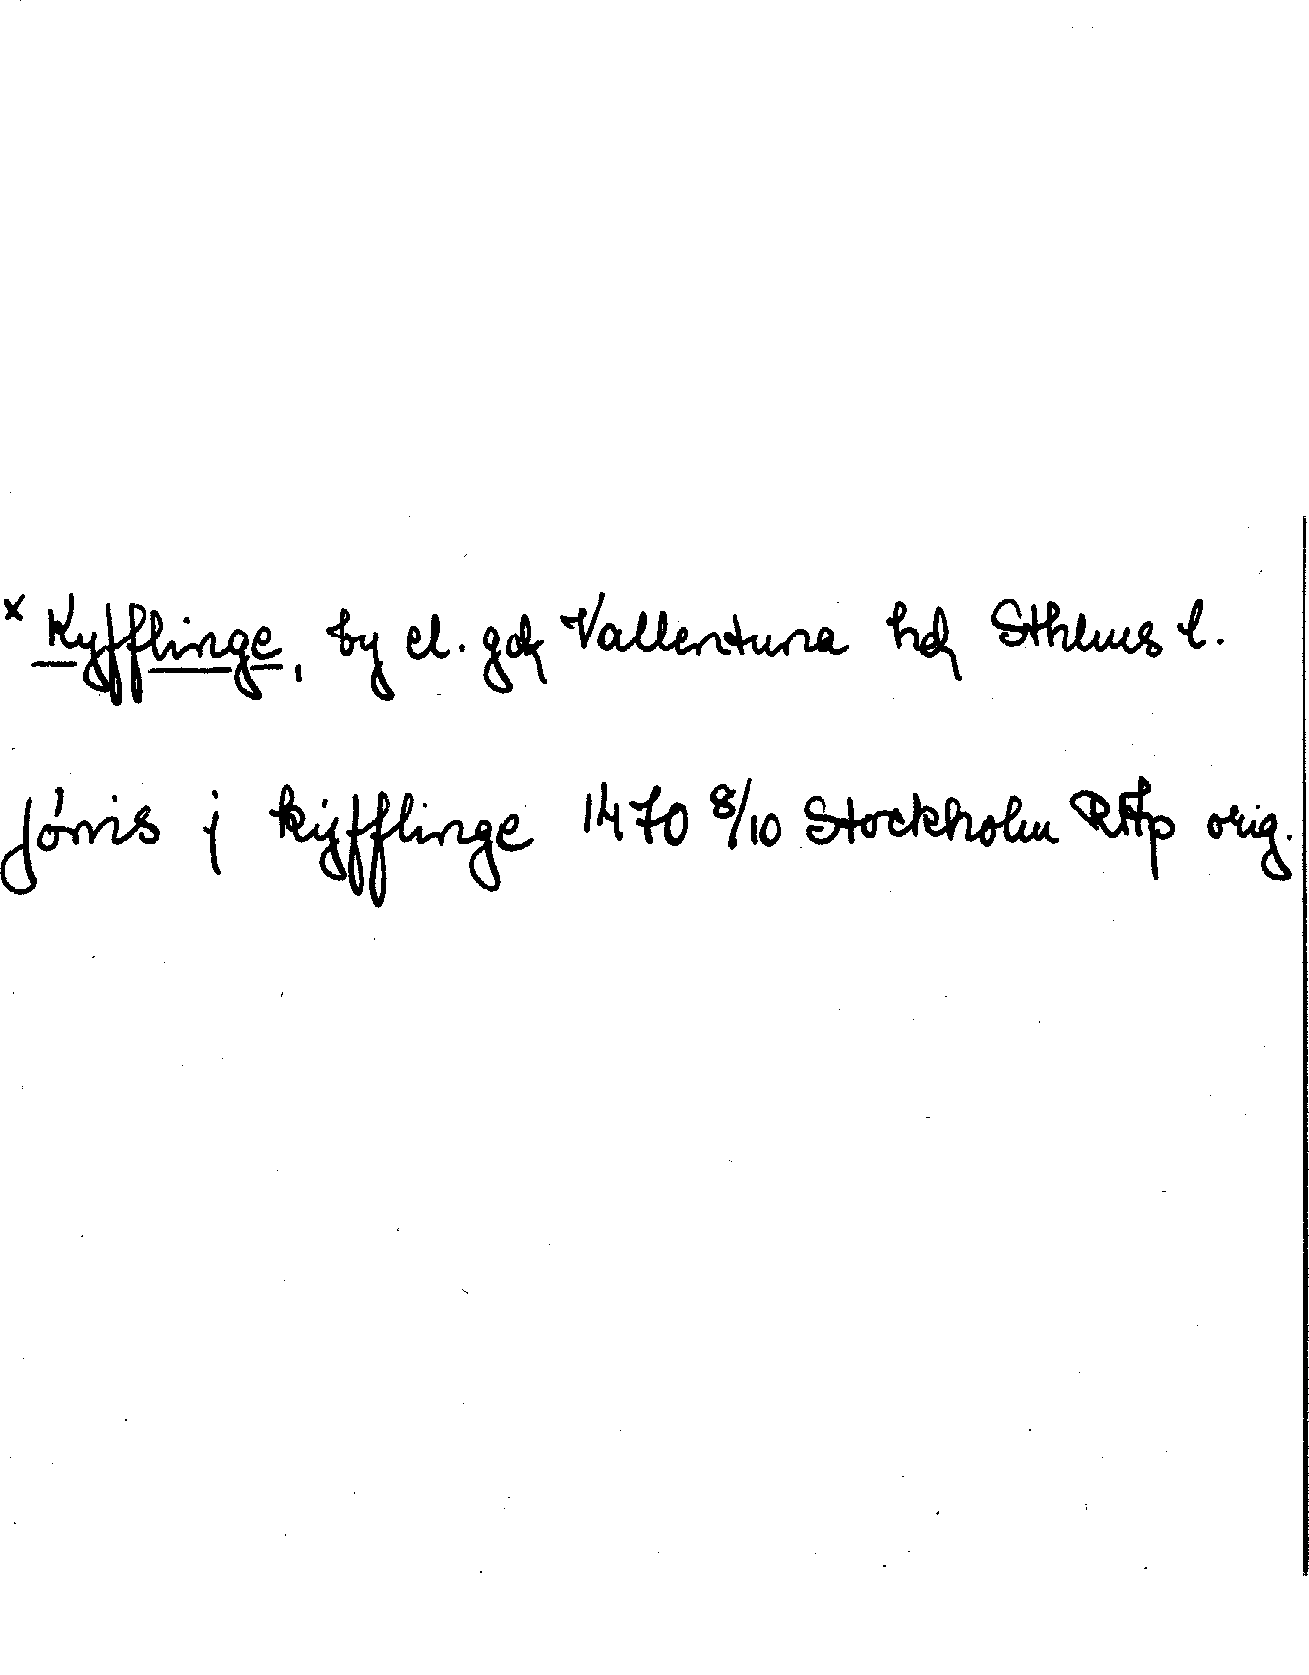 x Kyfflinge, by el. gd, Vallentuna hd, Sthlms l.
Jönis j kijfflinge 1470 8/10 Stockholm RAp orig.